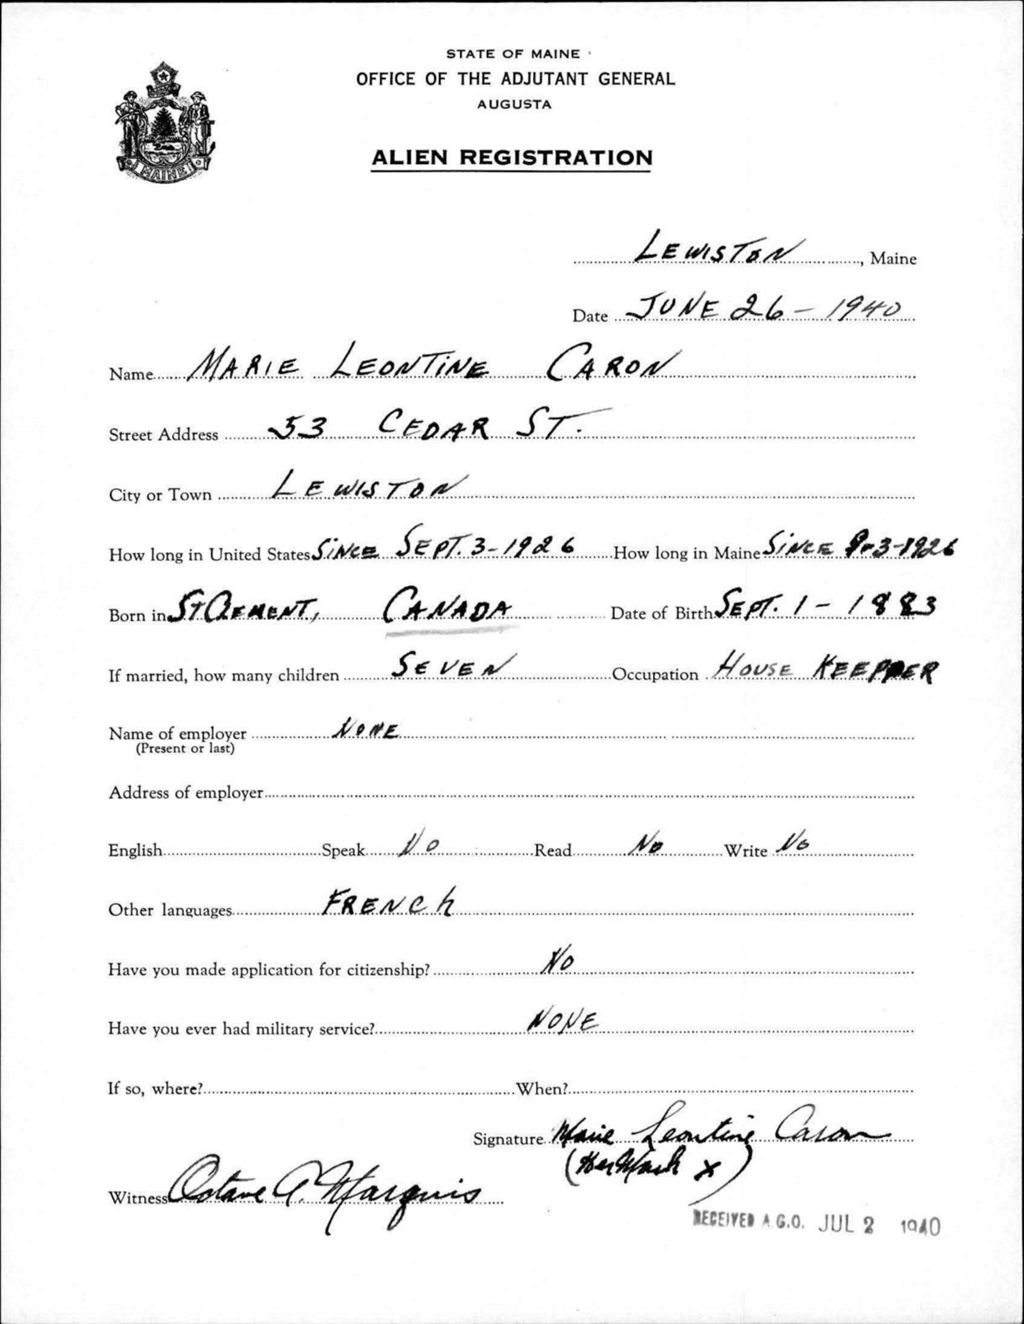 STATE OF MAINE
OFFICE OF THE ADJUTANT GENERAL
AUGUSTA
ALIEN REGISTRATION
MAINE
LEWISTON, Maine
Date JUNE 26-1940
Name MARIE LEONTINE CARON
Street Address 53 CEDAR ST.
City or Town LEWISTON
How long in United States SINCE SEPT. 3-1926 How long in Maine SINCE 9-3-1926
Born in ST CLEMENT, CANADA Date of Birth SEPT. 1-1883
If married, how many children SEVEN Occupation HOUSE KEEPER
Name of employer NONE
(Present or last)
Address of employer
English Speak NO Read NO Write NO
Other languages FRENCH
Have you made application for citizenship? NO
Have you ever had military service? NONE
If so, where? When?
Signature Marie Leontine Caron
(Her Mark X)
Witness Octave A. Marquis
RECEIVED A.G.O. JUL 2 1940